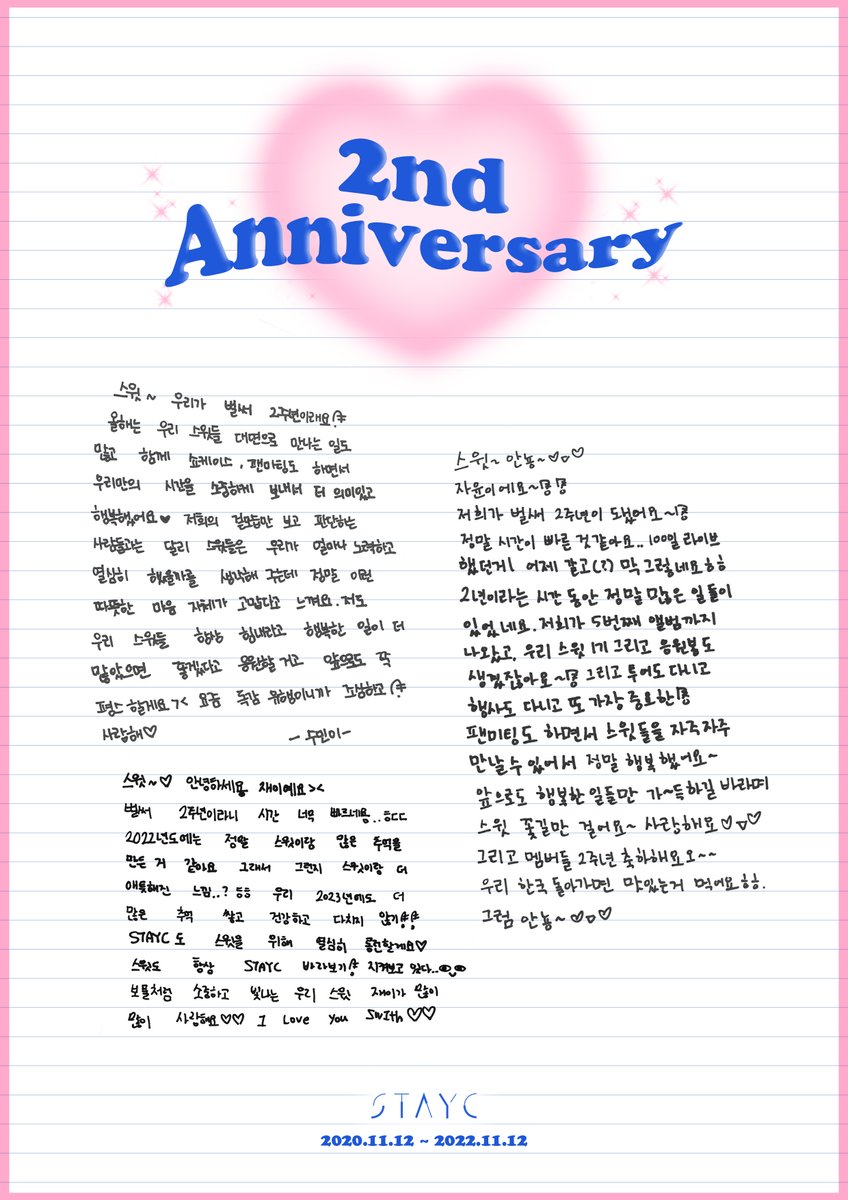 2nd
Anniversary
스윗~ 우리가 벌써 2주년이래요!
올해는 우리 스윗들 대면으로 만나는 일도
많고 함께 쇼케이스, 팬미팅도 하면서
우리만의 시간을 소중하게 보내서 더 의미있고
행복했어요♥ 저희의 겉모습만 보고 판단하는
사람들과는 달리 스윗들은 우리가 얼마나 노력하고
열심히 했을까를 생각해 주는데 정말 이런
따뜻한 마음 자체가 고맙다고 느껴요. 저도
우리 스윗들 항상 힘내라고 행복한 일이 더
많았으면 좋겠다고 응원할거고 앞으로도 쭉
평스 할게요 >< 요즘 독감 유행이니까 조심하고!
사랑해♡ -수민이-
스윗~♡ 안녕하세용 재이예요><
벌써 2주년이라니 시간 너무 빠르네용..ㅎㄷㄷ
2022년도에는 정말 스윗이랑 많은 추억을
만든 거 같아요 그래서 그런지 스윗이랑 더
애틋해진 느낌..? ㅎㅎ 우리 2023년에도 더
많은 추억 쌓고 건강하고 다치지 않기!!
STAYC도 스윗을 위해 열심히 롱런할게요♡
스윗도 항상 STAYC 바라보기! 지켜보고 있다..
보물처럼 소중하고 빛나는 우리 스윗 재이가 많이
많이 사랑해요♡♡ I Love you SWITH♡♡
스윗~ 안뇽~♡▽♡
자윤이에요~!!
저희가 벌써 2주년이 됐어요~!
정말 시간이 빠른 것같아요.. 100일 라이브
했던게 어제 같고(?) 막 그렇네요ㅎㅎ
2년이라는 시간 동안 정말 많은 일들이
있었네요. 저희가 5번째 앨범까지
나왔고, 우리 스윗 1기 그리고 응원봉도
생겼잖아요~! 그리고 투어도 다니고
행사도 다니고 또 가장 중요한!
팬미팅도 하면서 스윗들을 자주자주
만날 수 있어서 정말 행복했어요~
앞으로도 행복한 일들만 가~득하길 바라며
스윗 꽃길만 걸어요~ 사랑해요♡▽♡
그리고 멤버들 2주년 축하해요오~~
우리 한국 돌아가면 맛있는거 먹어요ㅎㅎ.
그럼 안뇽~♡▽♡
STAYC
2020.11.12 ~ 2022.11.12